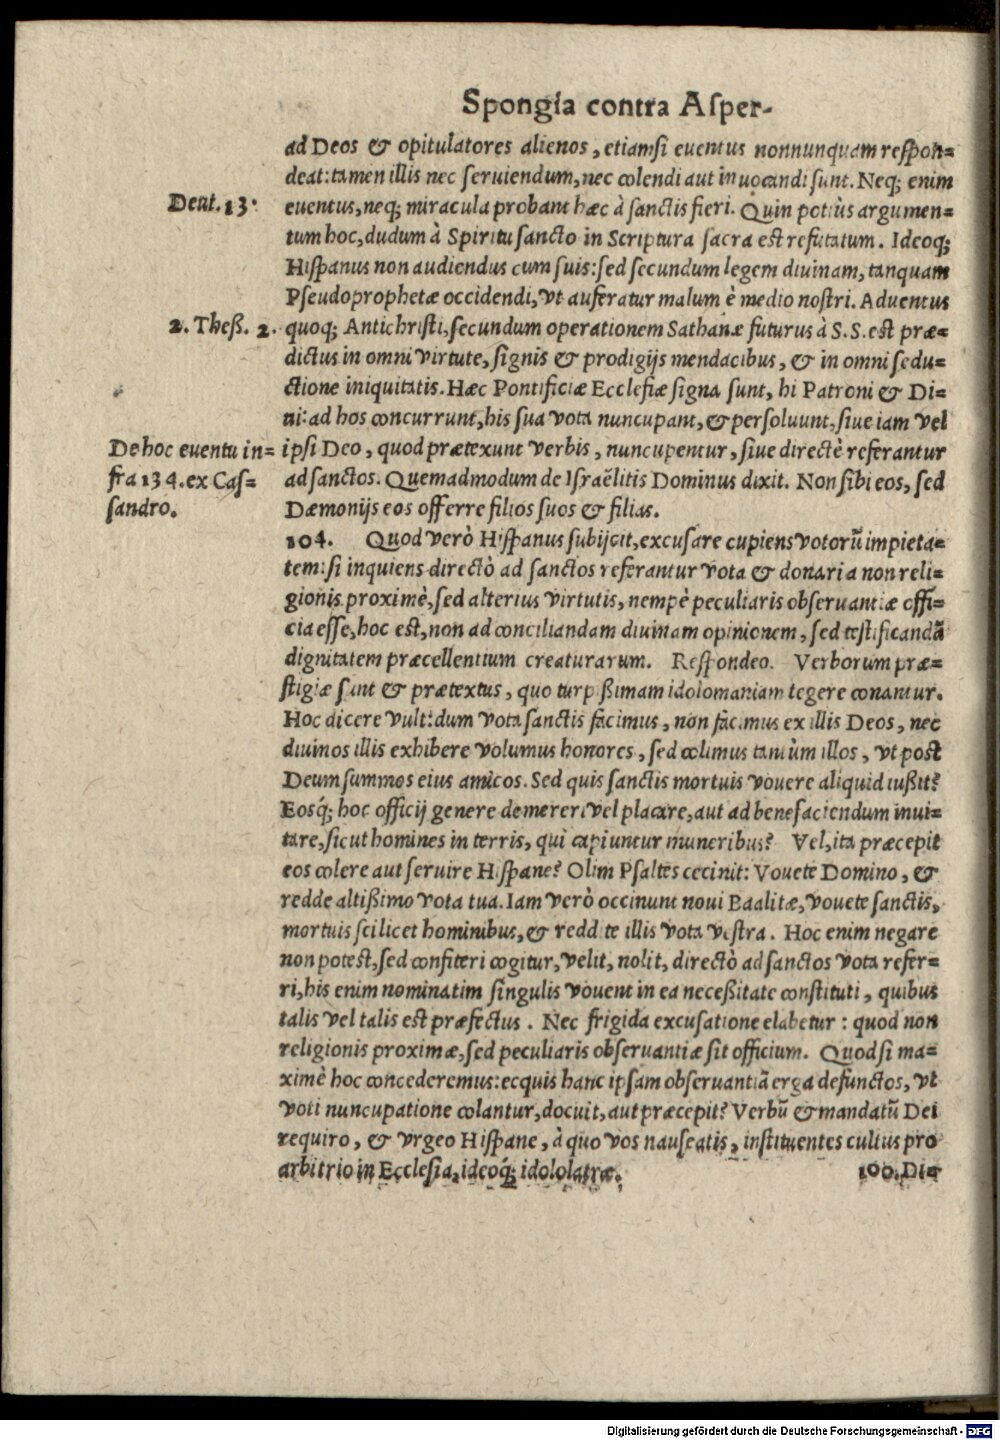 Spongia contra Aſper-
ad Deos & opitulatores alienos, etiamſi euentus nonnunquam reſpon=
deat: tamen illis nec ſeruiendum, nec colendi aut inuocandi ſunt. Neq; enim
Deut. 13.
euentus, neq; miracula probant hæc à ſanctis fieri. Quin potiùs argumen=
tum hoc, dudum à Spiritu ſancto in Scriptura ſacra eſt refutatum. Ideoq;
Hiſpanus non audiendus cum ſuis: ſed ſecundum legem diuinam, tanquam
Pſeudoprophetæ occidendi, vt auferatur malum è medio noſtri. Aduentus
2. Theß. 2.
quoq; Antichriſti, ſecundum operationem Sathanæ futurus à S. S. eſt præ=
dictus in omni virtute, ſignis & prodigijs mendacibus, & in omni ſedu=
ctione iniquitatis. Hæc Pontificiæ Eccleſiæ ſigna ſunt, hi Patroni & Di=
ni: ad hos concurrunt, his ſua vota nuncupant, & perſoluunt, ſiue iam vel
De hoc euentu in=
fra 134. ex Caſ=
ſandro.
ipſi Deo, quod prætexunt verbis, nuncupentur, ſiue directè referantur
ad ſanctos. Quemadmodum de Iſraëlitis Dominus dixit. Non ſibi eos, ſed
Dæmonijs eos offerre filios ſuos & filias.
104. Quod verò Hiſpanus ſubijcit, excuſare cupiens votorū impieta=
tem: ſi inquiens directò ad ſanctos referantur vota & donaria non reli=
gionis proximè, ſed alterius virtutis, nempè peculiaris obſeruantiæ offi=
cia eſſe, hoc eſt, non ad conciliandam diuinam opinionem, ſed teſtificandā
dignitatem præcellentium creaturarum. Reſpondeo. Verborum præ=
ſtigiæ ſunt & prætextus, quo turpißimam idolomaniam tegere conantur.
Hoc dicere vult: dum vota ſanctis facimus, non facimus ex illis Deos, nec
diuinos illis exhibere volumus honores, ſed colimus tantùm illos, vt poſt
Deum ſummos eius amicos. Sed quis ſanctis mortuis vouere aliquid iußit?
Eosq́; hoc officij genere demereri vel placare, aut ad benefaciendum inui=
tare, ſicut homines in terris, qui capiuntur muneribus? Vel, ita præcepit
eos colere aut ſeruire Hiſpane? Olim Pſaltes cecinit: Vouete Domino, &
redde altißimo vota tua. Iam verò occinunt noui Baalitæ, vouete ſanctis,
mortuis ſcilicet hominibus, & reddite illis vota veſtra. Hoc enim negare
non poteſt, ſed confiteri cogitur, velit, nolit, directò ad ſanctos vota refer=
ri, his enim nominatim ſingulis vouent in ea neceßitate conſtituti, quibus
talis vel talis eſt præfectus. Nec frigida excuſatione elabetur: quod non
religionis proximæ, ſed peculiaris obſeruantiæ ſit officium. Quod ſi ma=
ximè hoc concederemus: ecquis hanc ipſam obſeruantiā erga defunctos, vt
voti nuncupatione colantur, docuit, aut præcepit? Verbū & mandatū Dei
requiro, & vrgeo Hiſpane, à quo vos nauſeatis, inſtituentes cultus pro
arbitrio in Eccleſia, ideoq́; idololatræ.
100. Di=
Digitalisierung gefördert durch die Deutsche Forschungsgemeinschaft - DFG